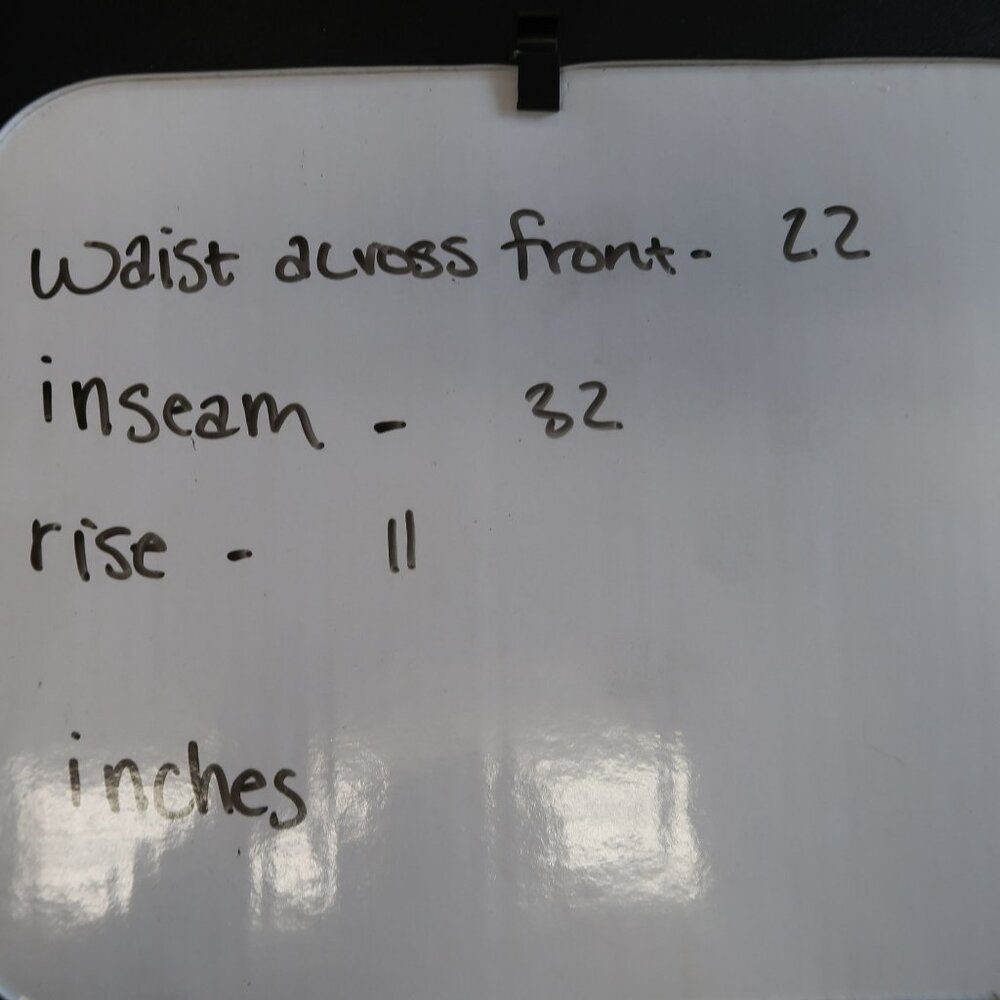 waist across front- 22
inseam - 32
rise - 11
inches